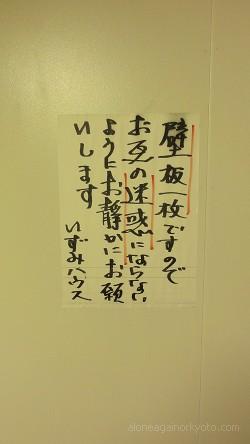 壁板一枚ですので
お互の迷惑にならない
ようにお静かにお願
いします
いずみハウス
aloneagainorkyoto.com